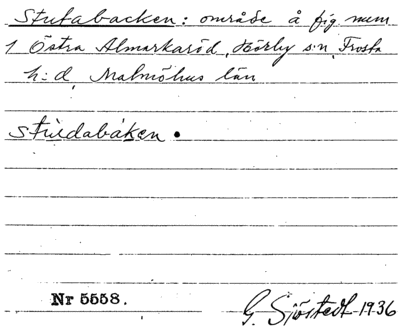 Stutabacken: område å fig num
1 Östra Almarkaröd, Hörby s:n, Frosta
h:d, Malmöhus län
stúdabáken.
Nr 5558.
G. Sjöstedt 1936